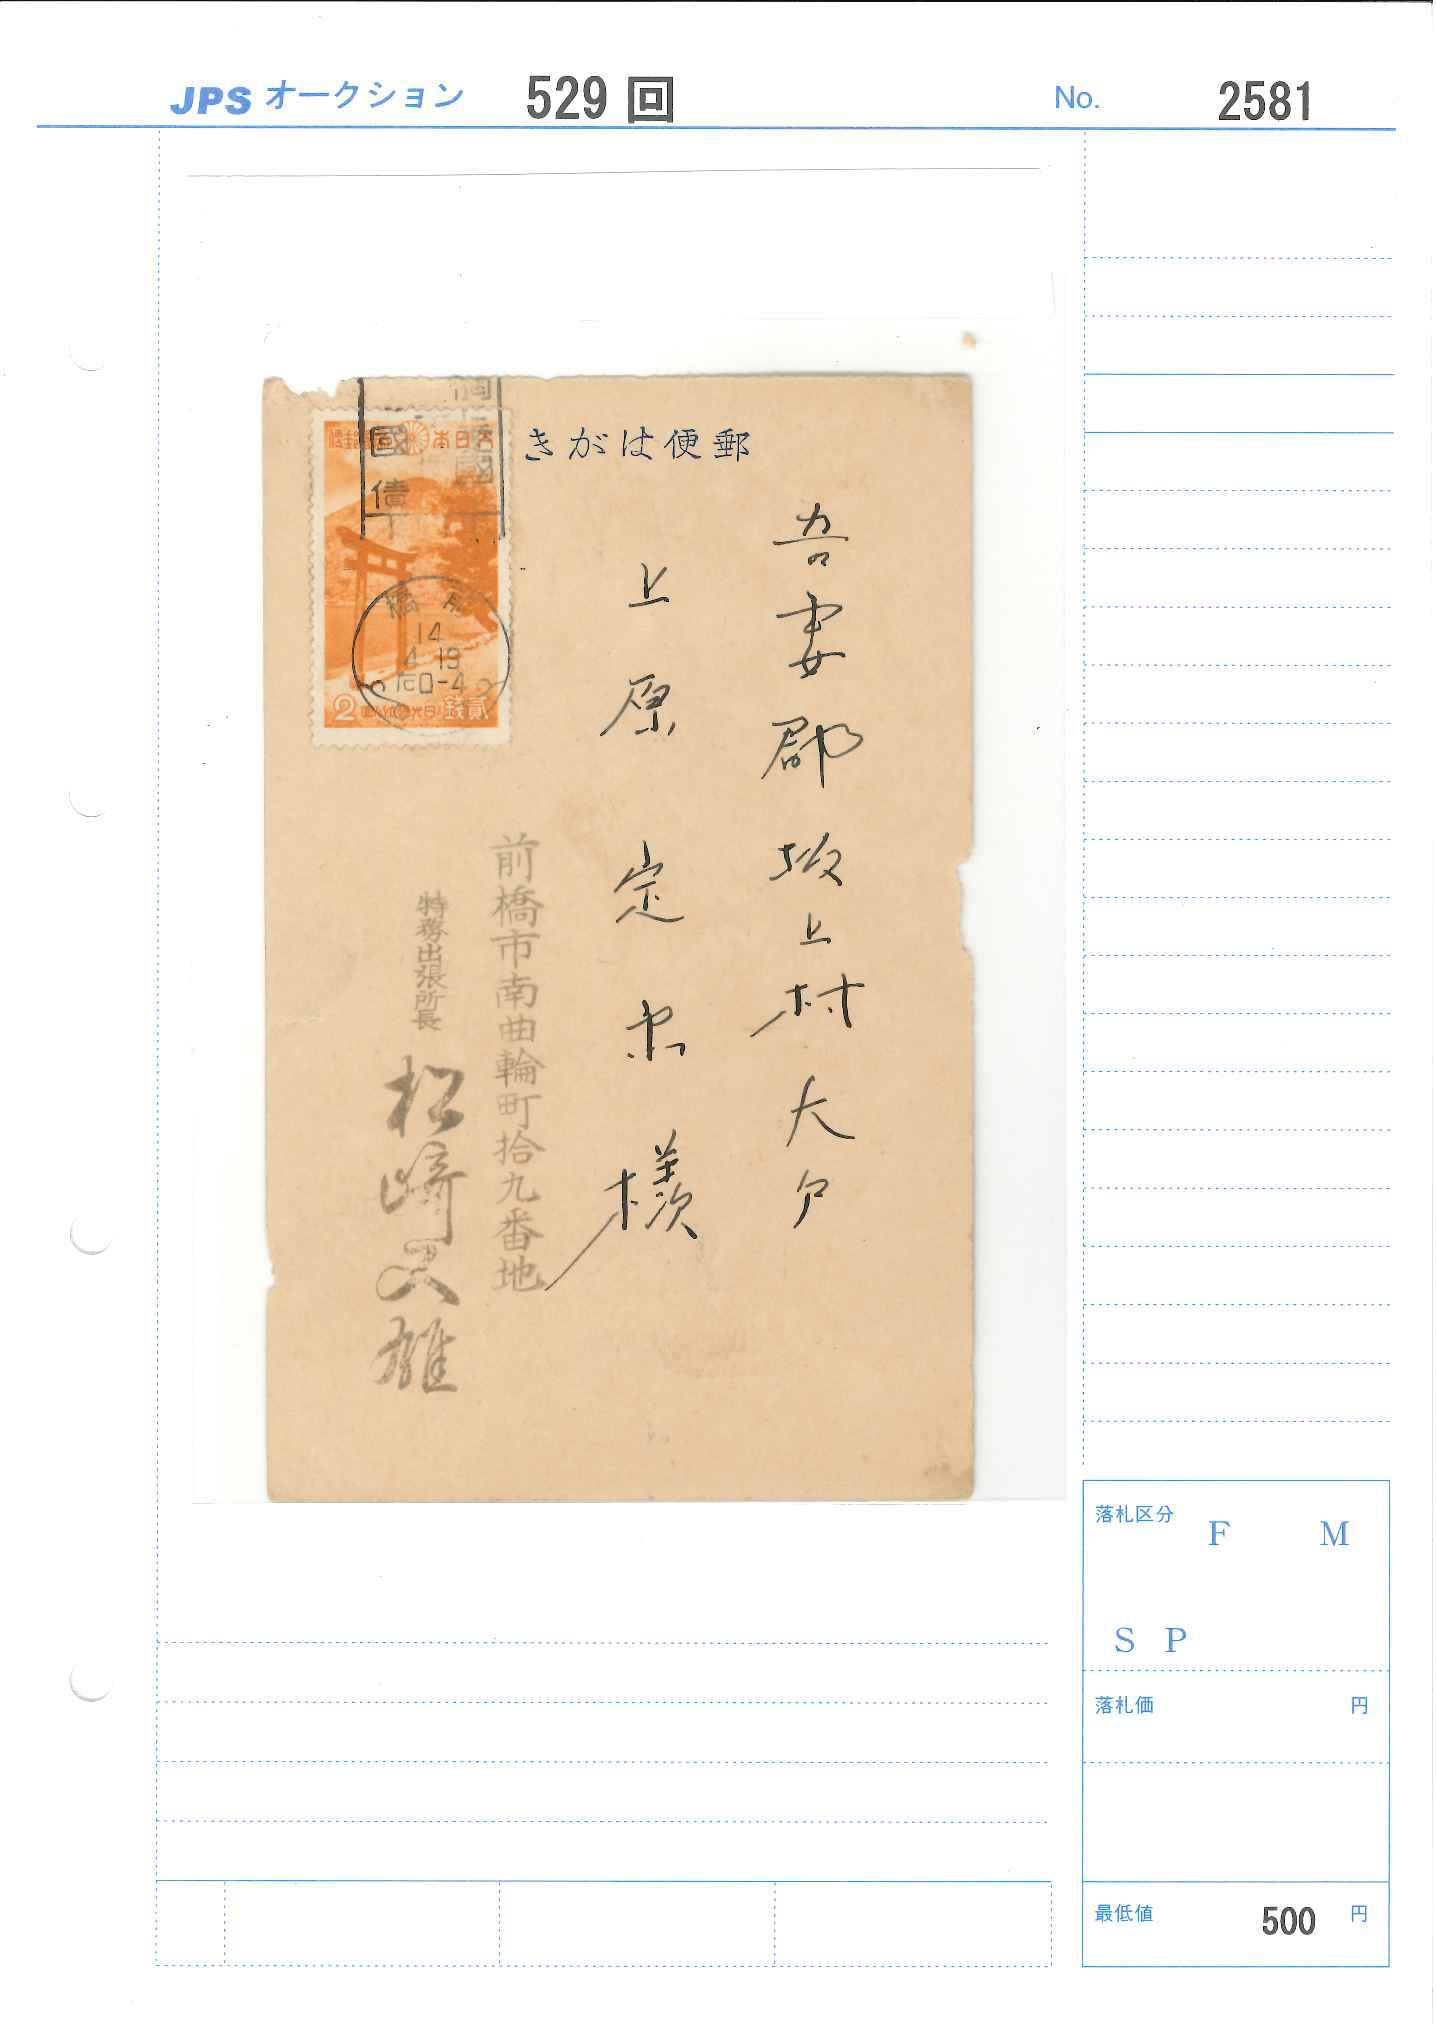 JPS オークション 529 回 No. 2581
きがは便郵
國債
大日本
前橋
14
4-19
后0-4
2 貳銭
吾妻郡坂上村大戸
上原定木様
前橋市南曲輪町拾九番地
特務出張所長
松崎又雄
落札区分 F M
S P
落札価 円
最低値 500 円